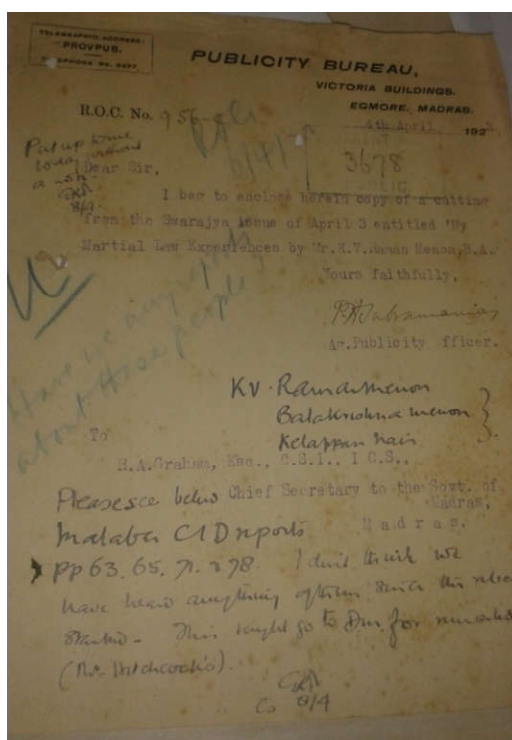 TELEGRAPHIC ADDRESS:
"PROVPUB."
TELEPHONE No.
PUBLICITY BUREAU,
VICTORIA BUILDINGS,
EGMORE, MADRAS.
R.O.C. No. 956
4th April 192
Put up to me
today without
3678
8/4
Dear Sir,
I beg to enclose herein copy of a cutting
from the Swarajya issue of April 3 entitled 'My
Martial Law Experiences by Mr.K.V.Raman Menon,B.A.
Yours faithfully,
Ag.Publicity Officer.
Have we any reports
about these people
KV. Raman Menon
Balakrishna menon
Kelappan Nair
To
R.A.Graham, Esq., C.S.I., I C S.,
Chief Secretary to the Govt. of
Madras,
Madras.
Please see below
Malabar CID reports
pp 63, 65, 71. & 78. I don't think we
have heard anything of them since the
started. This ought go to Dm. for remarks
(Mr. Hitchcock's).
8/4